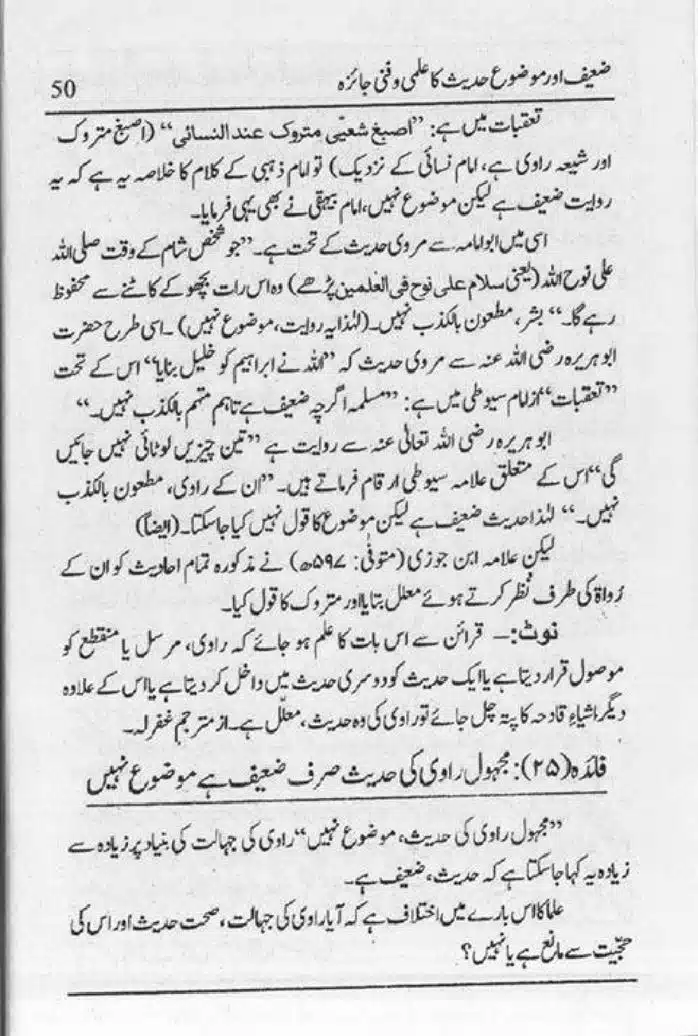 ضعیف اور موضوع حدیث کا علمی و فنی جائزہ
50
تعقبات میں ہے: ’’اصبغ شعیی متروک عند النسائی‘‘ (اصبغ متروک
اور شیعہ راوی ہے، امام نسائی کے نزدیک) تو امام ذہبی کے کلام کا خلاصہ یہ ہے کہ یہ
روایت ضعیف ہے لیکن موضوع نہیں، امام بیہقی نے بھی یہی فرمایا۔
اسی میں ابو امامہ سے مروی حدیث کے تحت ہے۔ ’’جو شخص شام کے وقت صلی اللہ
علی نوح اللہ (یعنی سلام علی نوح فی العٰلمین پڑھے) وہ اس رات بچھو کے کاٹنے سے محفوظ
رہے گا۔‘‘ بشر، مطعون بالکذب نہیں۔ (لہٰذا یہ روایت، موضوع نہیں)۔ اسی طرح حضرت
ابو ہریرہ رضی اللہ عنہ سے مروی حدیث کہ ’’اللہ نے ابراہیم کو خلیل بنایا‘‘ اس کے تحت
’’تعقبات‘‘ از امام سیوطی میں ہے: ’’مسلمہ اگرچہ ضعیف ہے تاہم متہم بالکذب نہیں۔‘‘
ابو ہریرہ رضی اللہ تعالٰی عنہ سے روایت ہے ’’تین چیزیں لوٹائی نہیں جائیں
گی‘‘ اس کے متعلق علامہ سیوطی ارقام فرماتے ہیں۔ ’’ان کے راوی، مطعون بالکذب
نہیں۔‘‘ لہٰذا حدیث ضعیف ہے لیکن موضوع کا قول نہیں کیا جاسکتا۔ (ایضاً)
لیکن علامہ ابن جوزی (متوفٰی: ۵۹۷ھ) نے مذکورہ تمام احادیث کو ان کے
رُواۃ کی طرف نظر کرتے ہوئے معلل بتایا اور متروک کا قول کیا۔
نوٹ:– قرائن سے اس بات کا علم ہو جائے کہ راوی، مرسل یا منقطع کو
موصول قرار دیتا ہے یا ایک حدیث کو دوسری حدیث میں داخل کر دیتا ہے یا اس کے علاوہ
دیگر اشیاءِ قادحہ کا پتہ چل جائے تو راوی کی وہ حدیث، معلّل ہے۔ از مترجم غفر لہ۔
فائدہ (۲۵): مجہول راوی کی حدیث صرف ضعیف ہے موضوع نہیں
’’مجہول راوی کی حدیث، موضوع نہیں‘‘ راوی کی جہالت کی بنیاد پر زیادہ سے
زیادہ یہ کہا جاسکتا ہے کہ حدیث، ضعیف ہے۔
علما کا اس بارے میں اختلاف ہے کہ آیا راوی کی جہالت، صحت حدیث اور اس کی
حجّیت سے مانع ہے یا نہیں؟